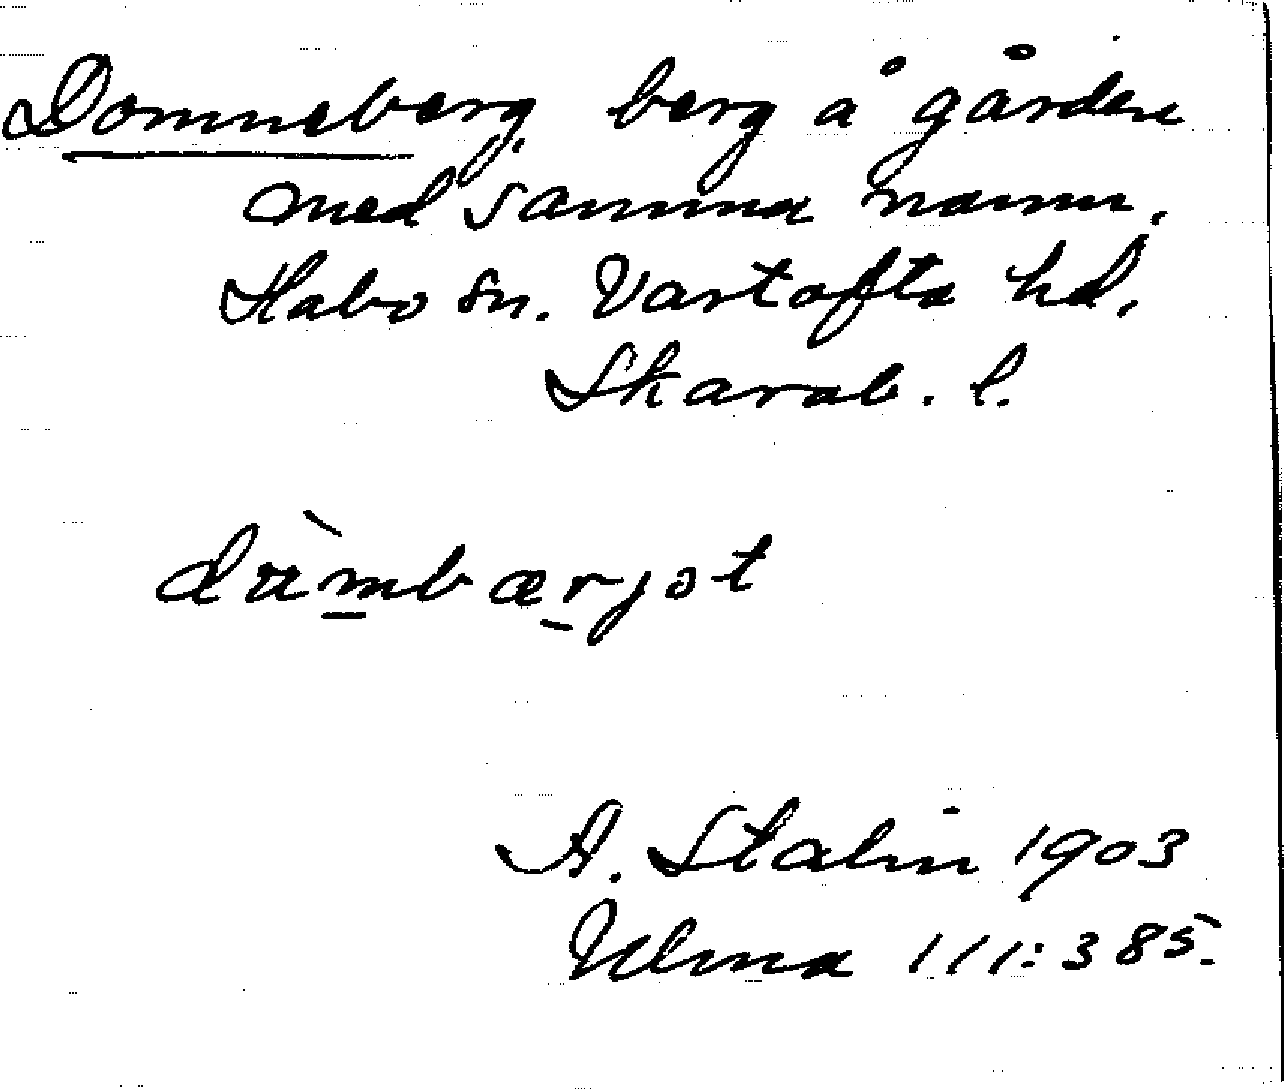 Domneberg, berg å gården
med samma namn,
Habo sn. Vartofta hd,
Skarab. l.
A. Stalin 1903
Ulma 111:385.